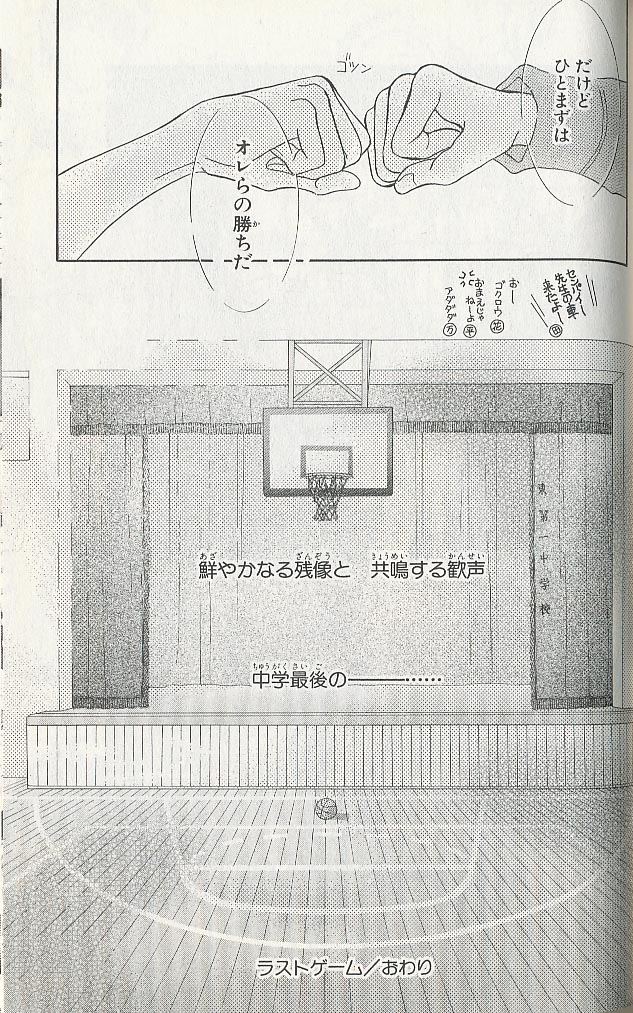 だけど
ひとまずは
ゴツン
オレらの勝ちだ
センパイー
先生の車
来たよー
おー
ゴクロウ 花
おまえじゃ
ねーよ 平
アダダダ 万
東第一中学校
鮮やかなる残像と 共鳴する歓声
中学最後の――――……
ラストゲーム／おわり